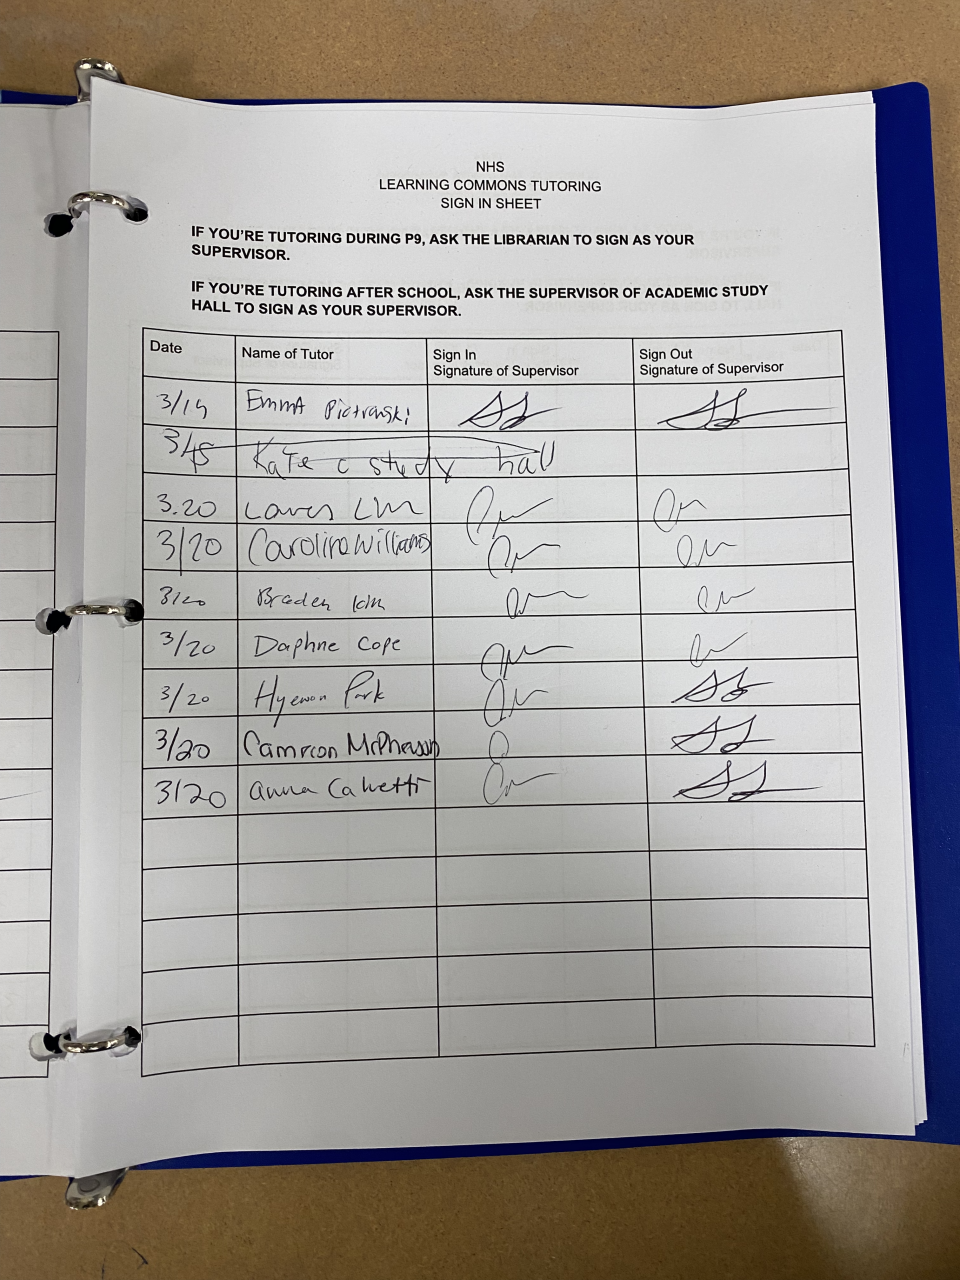 NHS
LEARNING COMMONS TUTORING
SIGN IN SHEET
IF YOU'RE TUTORING DURING P9, ASK THE LIBRARIAN TO SIGN AS YOUR
SUPERVISOR.
IF YOU'RE TUTORING AFTER SCHOOL, ASK THE SUPERVISOR OF ACADEMIC STUDY
HALL TO SIGN AS YOUR SUPERVISOR.
Date Name of Tutor Sign In Signature of Supervisor Sign Out Signature of Supervisor
3/19 Emma Piotrowski
Kate c study hall
3.20
3/20 Caroline Williams
3/20 Braden Kim
3/20 Daphne Cope
3/20 Hyewon Park
3/20 Camron McPherson
3/20 anna Calvetti